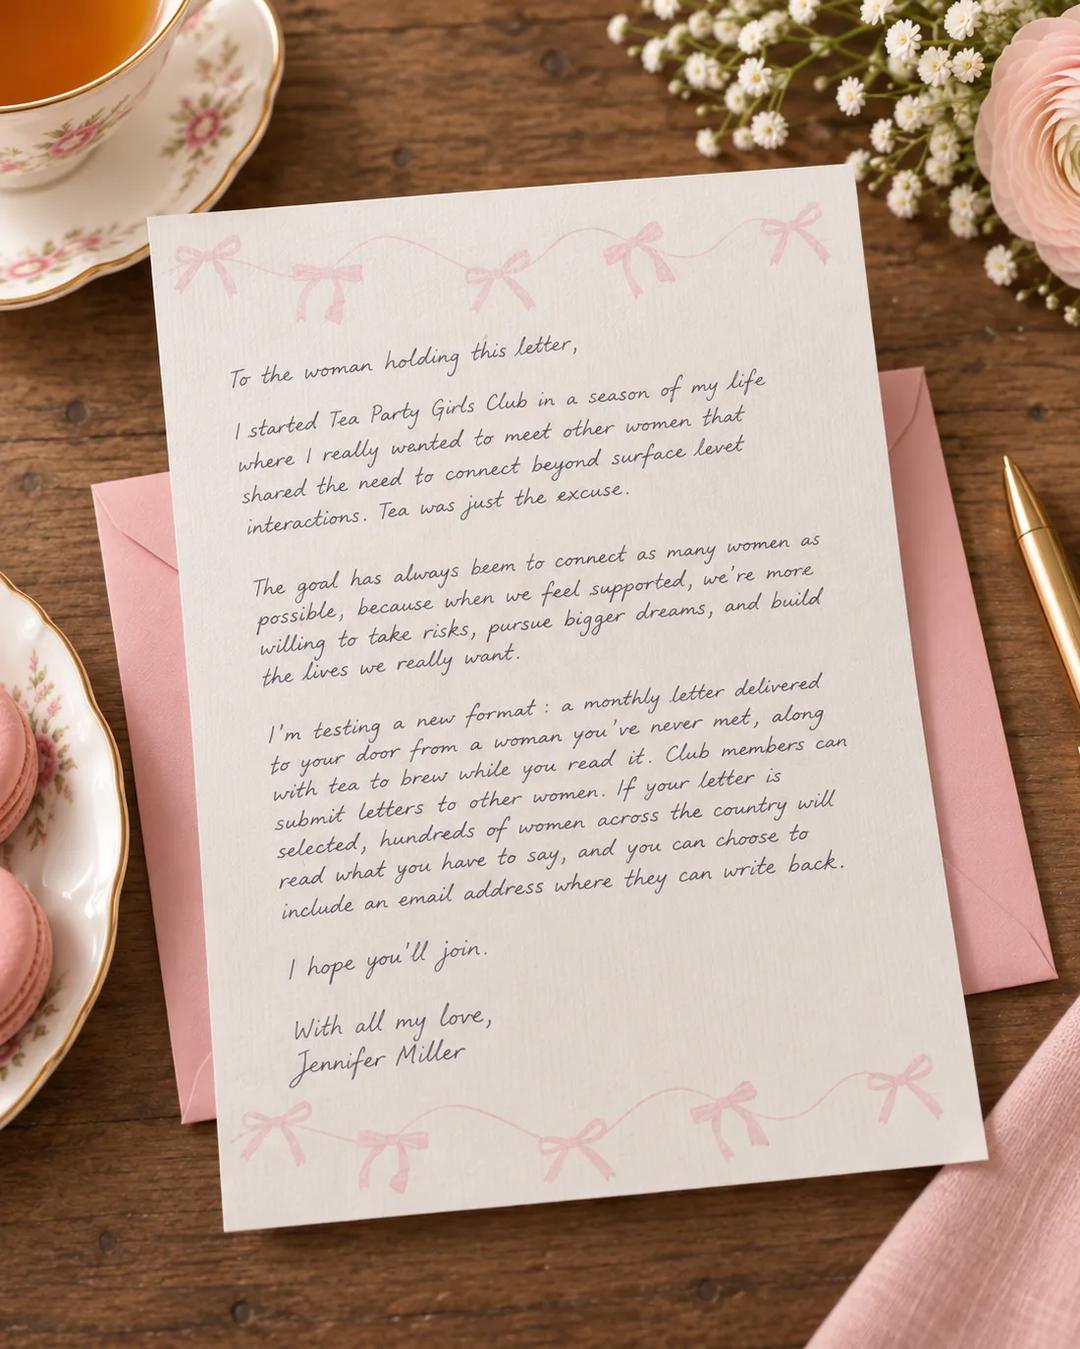 To the woman holding this letter,
I started Tea Party Girls Club in a season of my life
where I really wanted to meet other women that
shared the need to connect beyond surface levet
interactions. Tea was just the excuse.
The goal has always beem to connect as many women as
possible, because when we feel supported, we're more
willing to take risks, pursue bigger dreams, and build
the lives we really want.
I'm testing a new format : a monthly letter delivered
to your door from a woman you've never met, along
with tea to brew while you read it. Club members can
submit letters to other women. If your letter is
selected, hundreds of women across the country will
read what you have to say, and you can choose to
include an email address where they can write back.
I hope you'll join.
With all my love,
Jennifer Miller